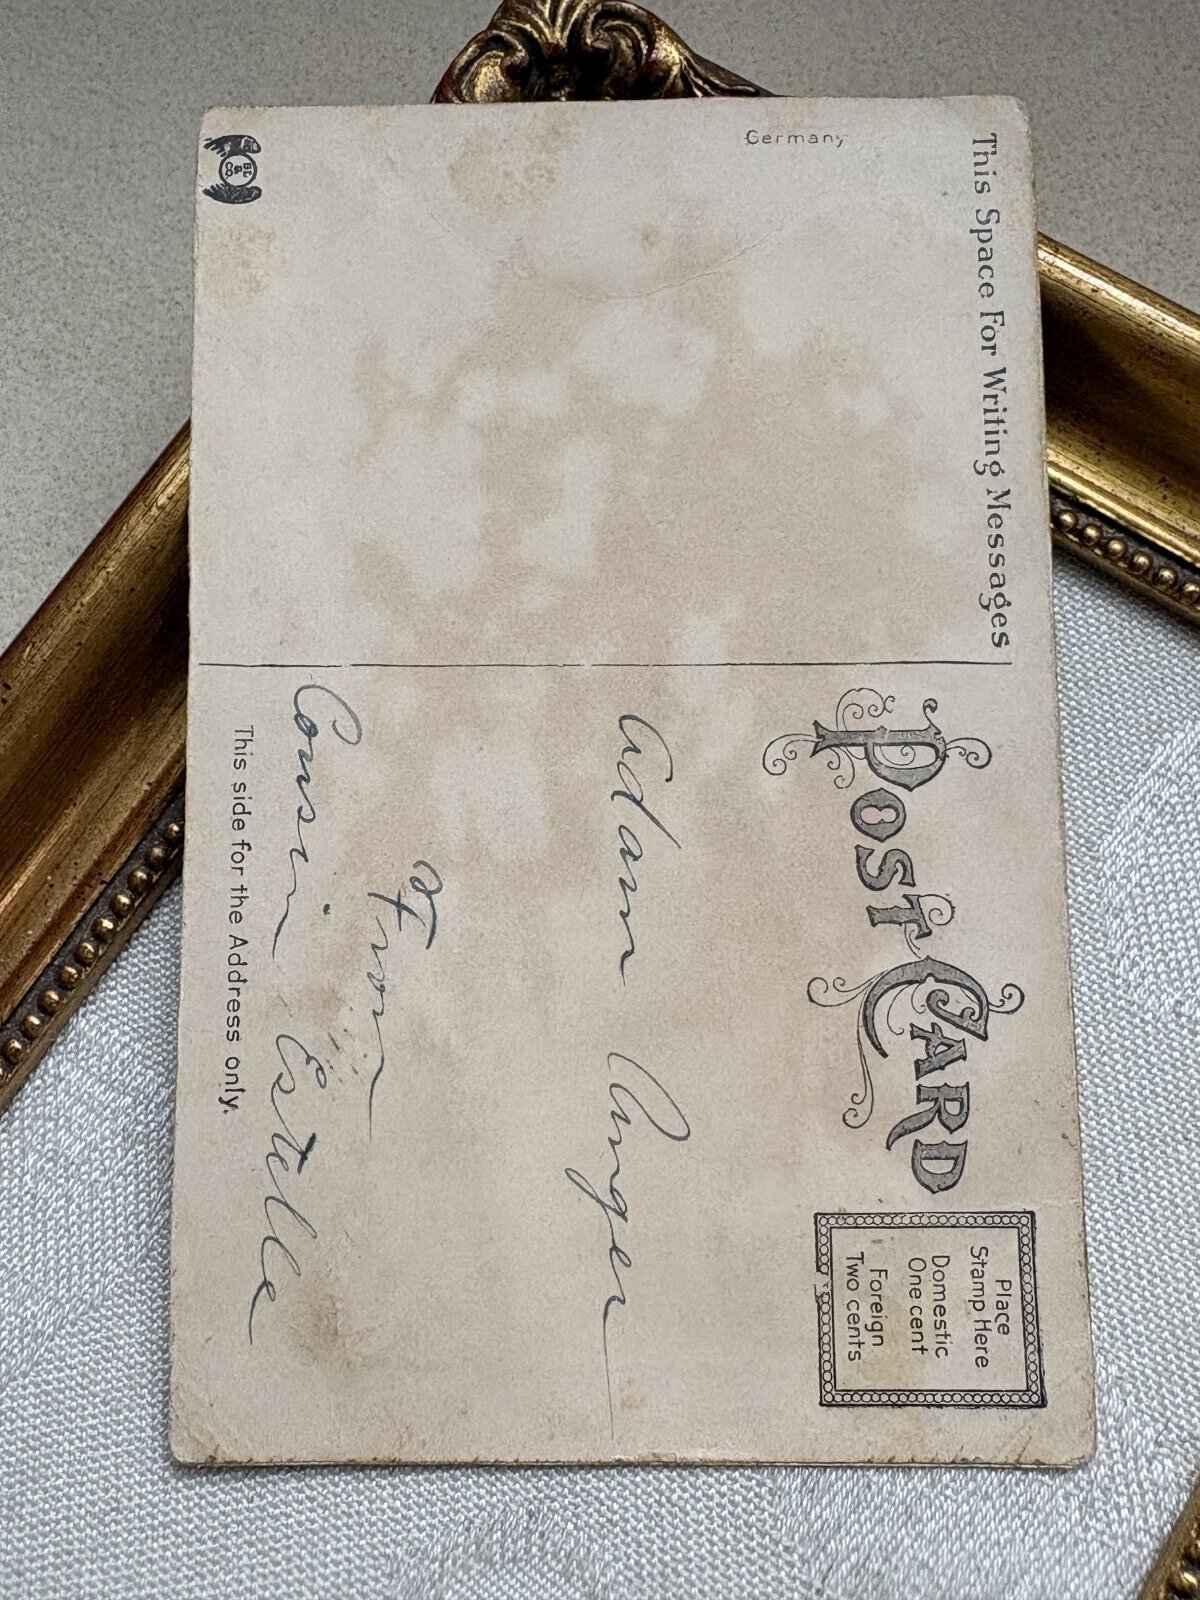 This Space For Writing Messages
Germany
BL & Co
POST CARD
Place
Stamp Here
Domestic
One cent
Foreign
Two cents
Adam Unger
From
Cousin Estella
This side for the Address only.